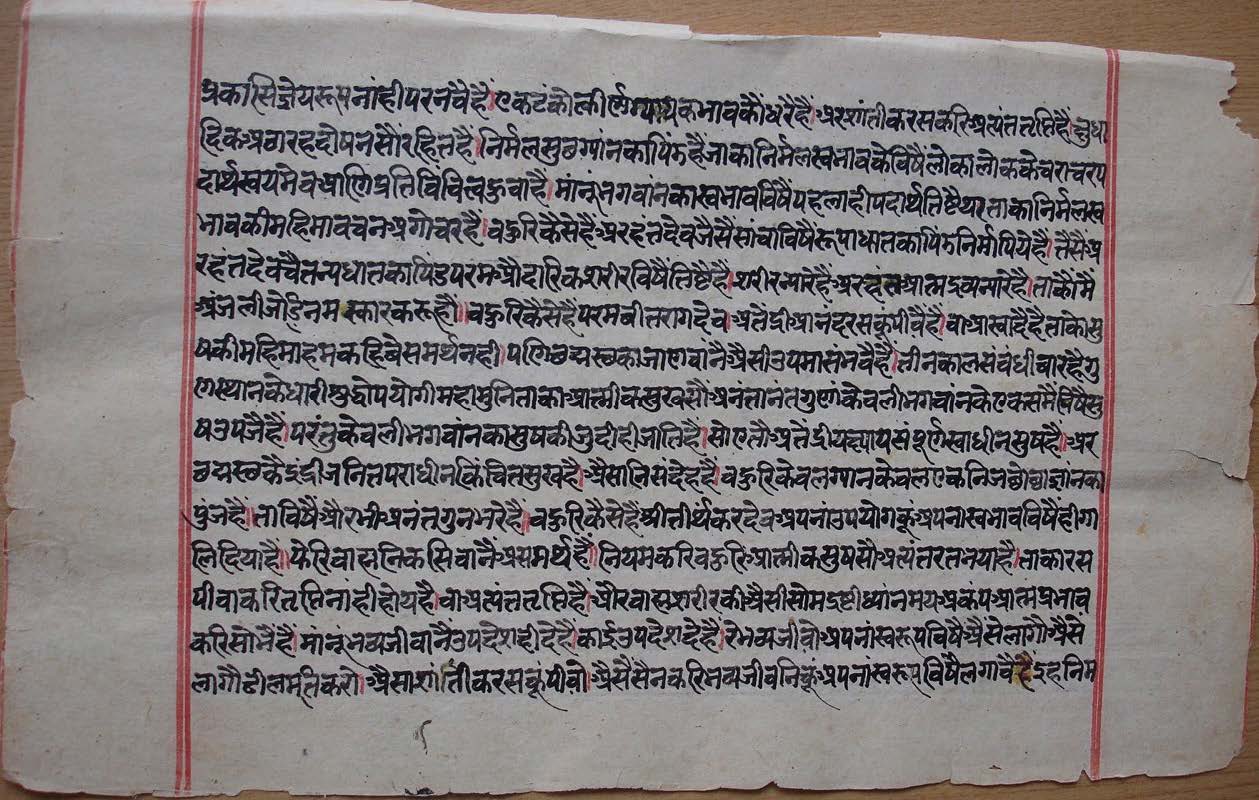 प्रकासिज्ञेयरूपनांहीपरनवैहैं।एकटंकोत्कीर्णग्यायकभावकौंधरैहैं।अरशांतीकरसकरिअत्यंततृप्तिहैं।क्षुधा
दिकअठारहदोषनसौंरहितहैं।निर्मलसुधग्यांनकापिंडहैजाकानिर्मलस्वभावकेविषैलोकालोककेचराचरप
दार्थस्वयमेवआणिप्रतिबिंबितहुवाहैं।मांनूंभगवांनकास्वभावविषैंपहलाहीपदार्थतिष्टैथाताकानिर्मलस्व
भावकीमहिमावचनअगोचरहैं।बहुरिकैसेहैंअरहंतदेवजैसैसांचाविषैरूपाधातकापिंडनिर्मापियेहैं।तैसैंअ
रहंतदेवचैतन्यधातकापिंडपरमऔदारिकशरीरविषैंतिष्टैंहैं।शरीरन्यारेहैअरहंतआत्मद्रव्यन्यारेहै।ताकौंमै
अंजलीजोडिनमस्कारकरूहौं।।बहुरिकैसेहैंपरमवीतरागदेव।अतेंद्रीआनंदरसकूंपीवैहैं।वाआस्वादैहैताकोसु
षकीमहिमांहमकहिवेसमर्थनही।पणिछद्मस्थकाजाणवांनैऔसीउपमासंनवैहैं।तीनकालसंबंधीबारहैगु
णस्थानकेधारीशुद्धोपयोगीमहामुनिताकाआत्मीकसुखसौंअनंतानंतगुणांकेवलीभगवांनकेएकसमैंविषैसु
षउपजैंहैं।परंतुकेवलीभगवांनकासुषकीजुदीहीजातिहैं।सोएतौअतेंद्रीयह्यायसंपूर्णस्वाधीनसुषहैं।अर
छद्मस्थकैइंद्रीजनितपराधीनकिंचितसुखहै।औसानिसंदेहहै।बहुरिकेवलग्यानकेवलएकनिजबोधाज्ञांनका
पुंजहैं।ताविषैऔरभीअनंतगुनभरेहैं।बहुरिकैसेहैंश्रीतीर्थंकरदेवअपनांउपयोगकूंअपनास्वभावविषैंहीगा
लिदियाहैं।फेरिवाह्यनिकसिवानैंअसमर्थहैं।नियमकरिबहुरिआत्मीकसुषसौअत्यंतरतनयाहै।ताकारस
पीवाकरितृप्तिनांहीहोयहै।वाअत्यंततृप्तिहैं।औरवाह्यशरीरकीऔसीसोमद्रष्टीध्यांनमयअकंपआत्मप्रभाव
करिसोभैंहैं।मांनूंभव्यजीवानैंउपदेशहीदेहैं।काईउपदेशदेहैं।रेभव्यजीवोअपनांस्वरूपविषैऔसेलागौऔसे
लागौढीलमतिकरो।औसाशांतीकरसकूंपीवो।औसैंसैनकरिभव्यजीवनिकूंअपनास्वरूपविषैलगावैहैइहनिम